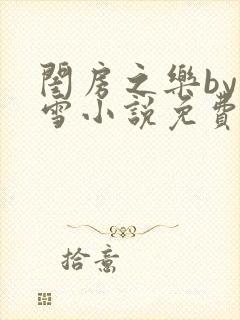 閨房之樂by
雪小說免費
拾意